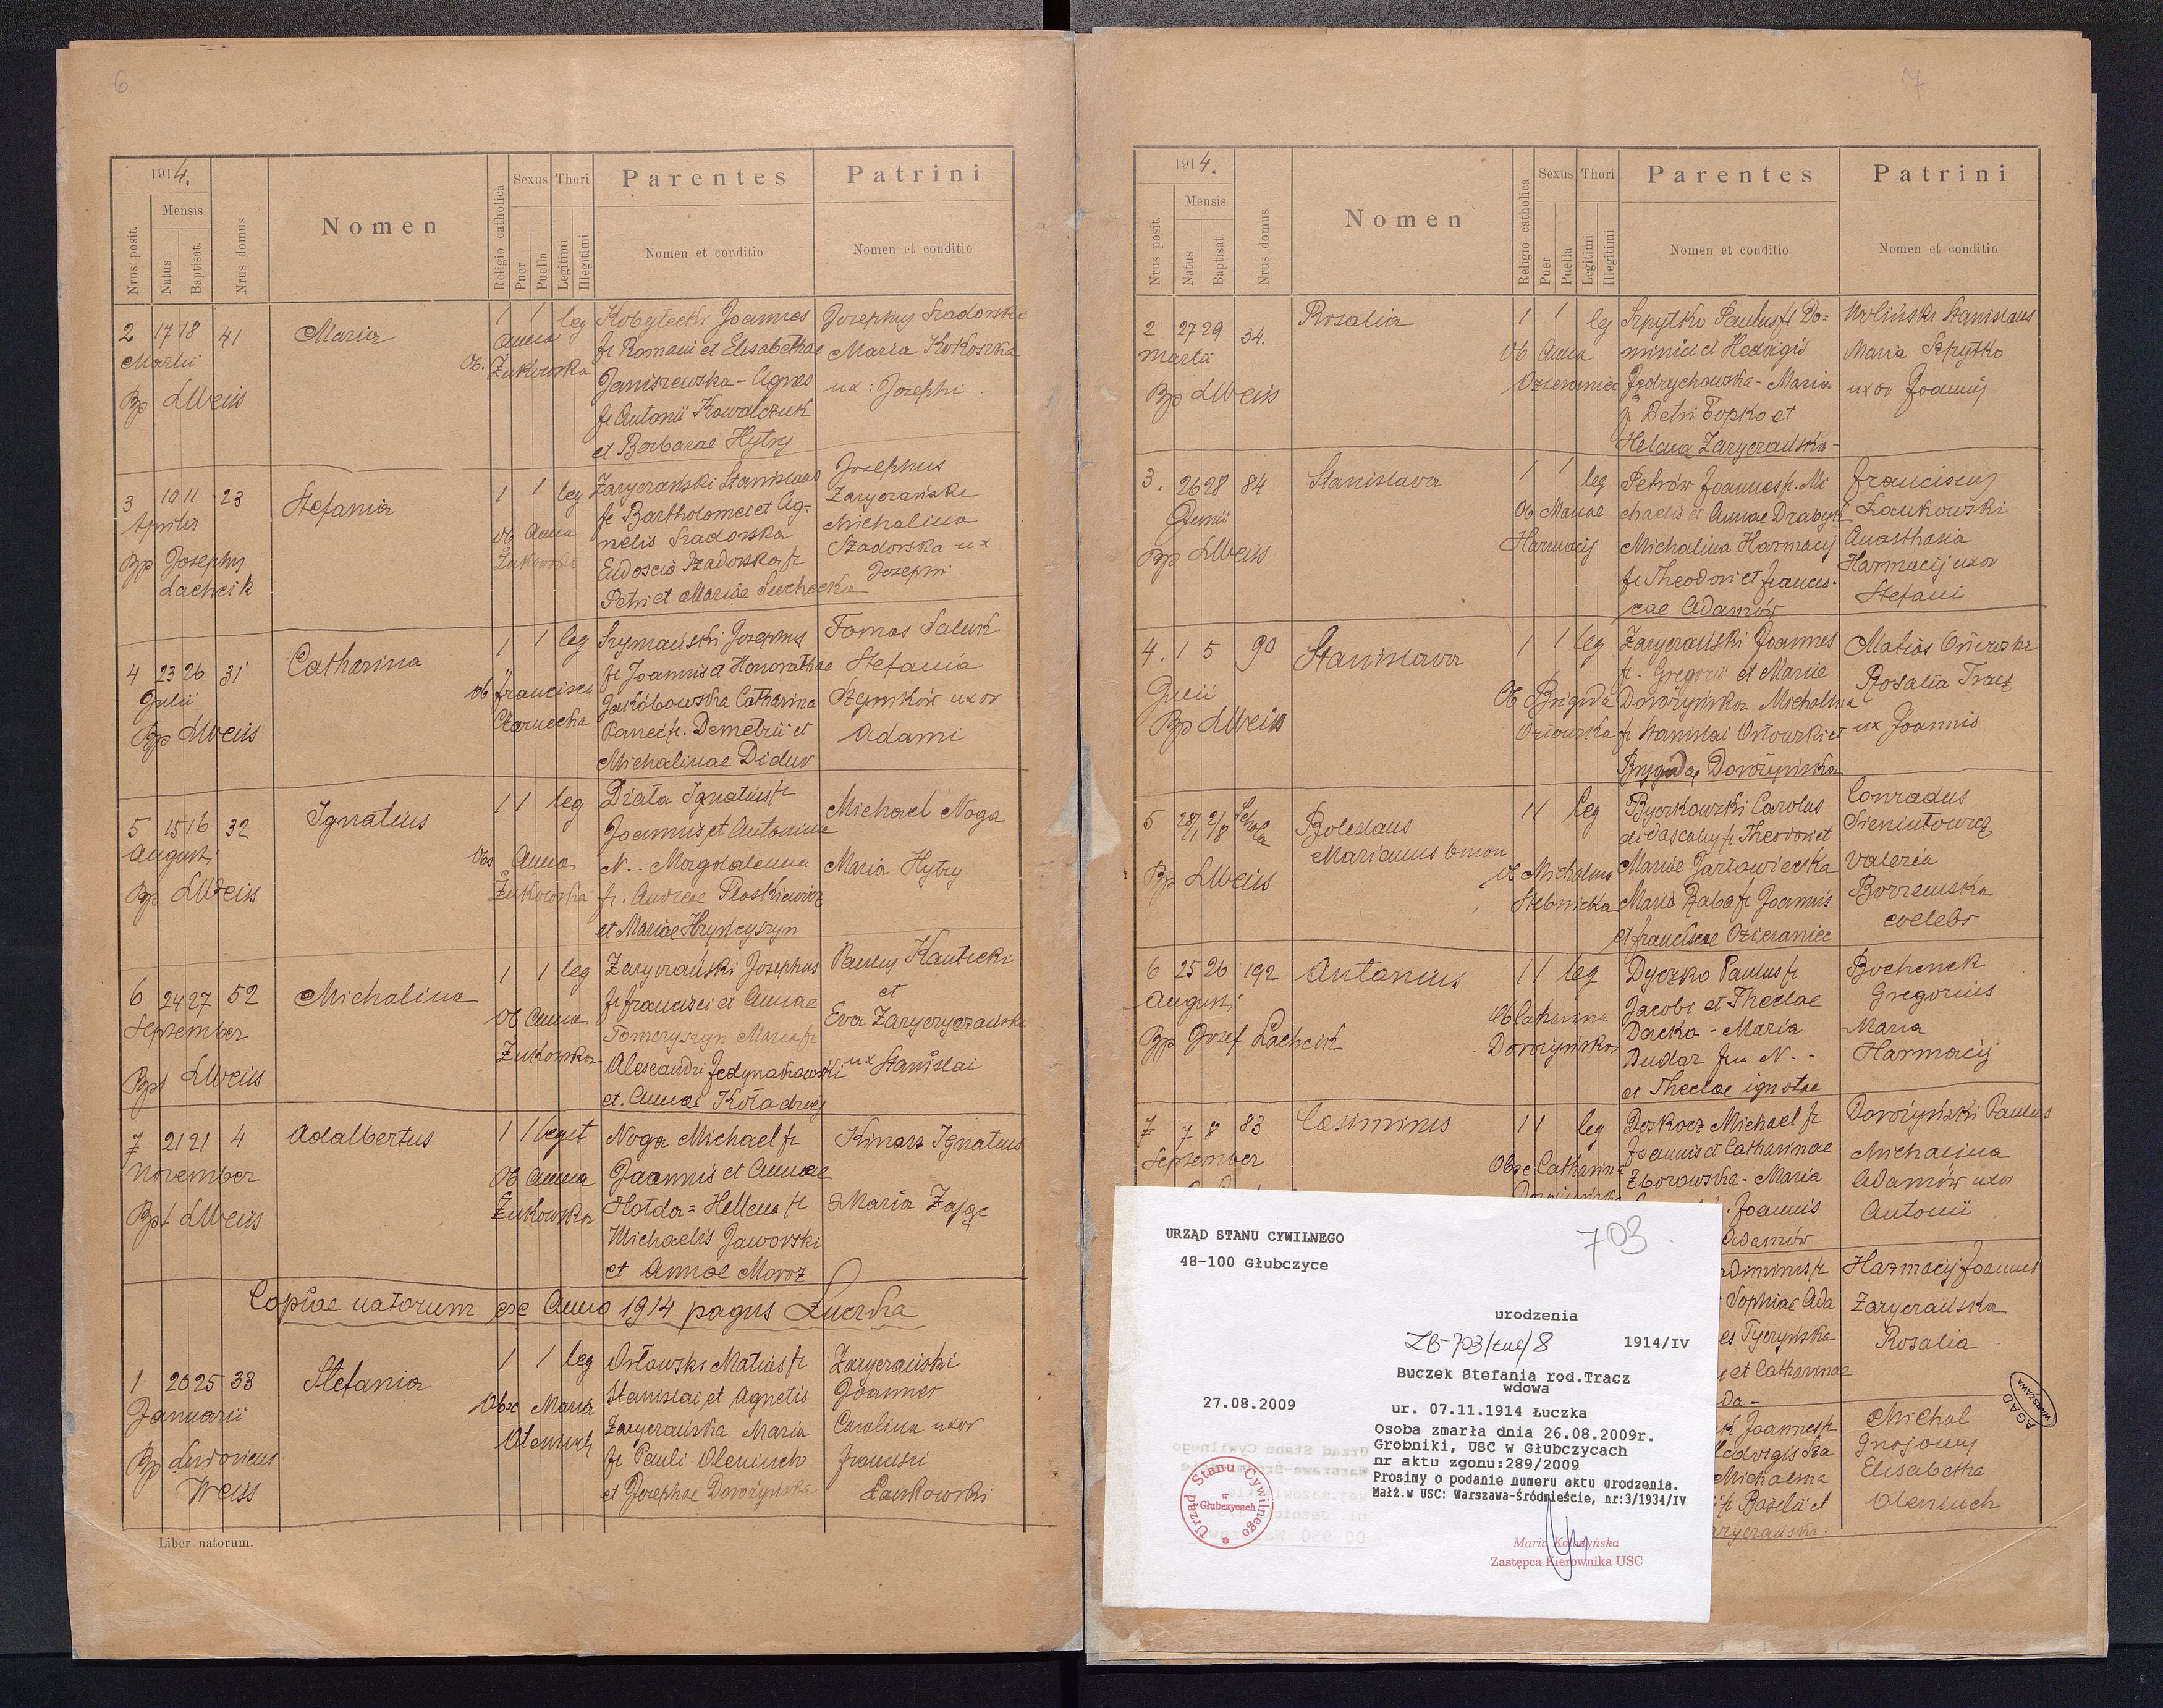 6
1914.
Nrus posit.
Mensis
Natus
Baptisat.
Nrus domus
Nomen
Religio catholica
Sexus
Puer
Puella
Thori
Legitimi
Illegitimi
Parentes
Nomen et conditio
Patrini
Nomen et conditio
2 17 18 41 Maria 1 1 leg Kobyłecki Joannes Josephus Szadorski
Martii Anna fr Romani et Elisabethae Maria Kokoszka
Ob. Żukowska Janiszewska - Agnes ux: Josephi
Bp LWeiss
fr Antonii Kowalczuk
et Barbarae Hytry
3 10 11 23 Stefania 1 1 leg Zaryczański Stanislaus Josephus
Aprilis fr Bartholomei et Ag- Zaryczański
Ob Anna nelis Szadorska Michalina
Żukowska Szadorska fr Szadorska ux
Bp Josephus Petri et Mariae Suchocka Josephi
Lachcik
4 23 26 31 Catharina 1 1 leg Szymański Josephus Tomas Saluk
Julii fr Joannis et Honorathae Stefania
Ob Francisca Jakóbowska Catharina
uxor
Bp LWeiss fr. Demetrii et Adami
Michalinae Didur
5 15 16 32 Ignatius 1 1 leg Działa Ignatius fr Michael Noga
Augusti Joannis et Antonina
Obs Anna N.. Magdalena Maria Hytry
Żukowska fr. Andreae
Bp LWeiss et Mariae Hryńcyszyn
6 24 27 52 Michalina 1 1 leg Zaryczański Josephus Paulus Kauticki
September fr Francisci et Annae et
Ob Anna Tomczyszyn Maria fr Eva
Żukowska Alexandri Jedynakowski ux Stanislai
Bpt LWeiss et. Annae Koladrecz
7 21 21 4 Adalbertus 1 1 legit Noga Michael fr Kinasz Ignatius
November Joannis et Annae
Ob Anna Hołda = Hellena fr Maria Zając
Żukowska Michaelis Jaworski
Bpt LWeiss et Annae Moroz
Copiae natorum ex Anno 1914 pagus Łuczka
1 20 25 33 Stefania 1 1 leg Orłowski Matias fr Zaryczański
Januarii Stanislai et Agnetis Joannes
Obst Maria Zaryczańska Maria Carolina uxor
Oleniuch fr Pauli Oleniuch Francisci
Bp Ludovicus et Josephae Dorożyńska Łankowski
Weiss
Liber natorum.
7
1914.
Nrus posit.
Mensis
Natus
Baptisat.
Nrus domus
Nomen
Religio catholica
Sexus
Puer
Puella
Thori
Legitimi
Illegitimi
Parentes
Nomen et conditio
Patrini
Nomen et conditio
2 27 29 34. Rosalia 1 1 leg Szpytko Paulus fr Do= Woliński Stanislaus
Martii Ob Anna minici et Hedvigis Maria Szpytko
Ozieraniec Jędrychowska - Maria uxor Joannis
Bp LWeiss fr Petri Topko et
Helena Zaryczańska -
3. 26 28 84 Stanislava 1 1 leg Petrów Joannes fr. Mi Franciscus
Junii Ob Mariae chaelis et Annae Drabyk Łankowski
Harmacij Michalina Harmacij Anasthasia
Bp LWeiss fr Theodori et Francis- Harmacij uxor
cae Adamów Stefani
4. 1 5 90 Stanislava 1 1 leg Zaryczański Joannes Matias
Julii fr. Gregorii et Mariae Rosalia Tracz
Ob Brigida Dorożyńska Michalina ux Joannis
Bp LWeiss fr Stanislai Orłowski et
Brygidae Dorożyńska
5 28/1 2/8 Schola Boleslaus 1 1 leg Byczkowski Carolus Conradus
Marianus didascalus fr Theodori et Sieniutowicz
Ob Michalina Mariae Jarłowiecka Valeria
Bp LWeiss Stebnicka Maria Rąba fr Joannis Borzemska
et Franciscae Ozieraniec coelebs
6 25 26 192 Antonius 1 1 leg Dyczko Paulus fr Bochenek
Augusti Jacobi et Theclae Gregorius
Ob Catharina Dacka - Maria Maria
Bp Josef Lachcik Dorożyńska Dudar N.. Harmacij
et Theclae ignotae
7 7 8 83 Casimirus 1 1 leg Doskocz Michael fr Dorożyński Paulus
September Joannis et Catharinae Michalina
Obse Catharina Zborowska - Maria Adamów uxor
Joannis Antonii
Adamów
Harmacij Joannes
Sophiae Ada Zaryczańska
Tyczyńska Rosalia
et Catharinae
Joannes fr Michal
Hedvigis Gnojowy
Michalina Elisabetha
fr Basilii et Oleniuch
AGAD
WARSZAWA
URZĄD STANU CYWILNEGO
48-100 Głubczyce
703
urodzenia
ZB-703/Łuc/8 1914/IV
Buczek Stefania rod.Tracz
wdowa
27.08.2009
ur. 07.11.1914 Łuczka
Osoba zmarła dnia 26.08.2009r.
Grobniki, USC w Głubczycach
nr aktu zgonu:289/2009
Prosimy o podanie numeru aktu urodzenia.
Małż.w USC: Warszawa-Śródmieście, nr:3/1934/IV
Urząd Stanu Cywilnego
w Głubczycach
Maria Kołodyńska
Zastępca Kierownika USC